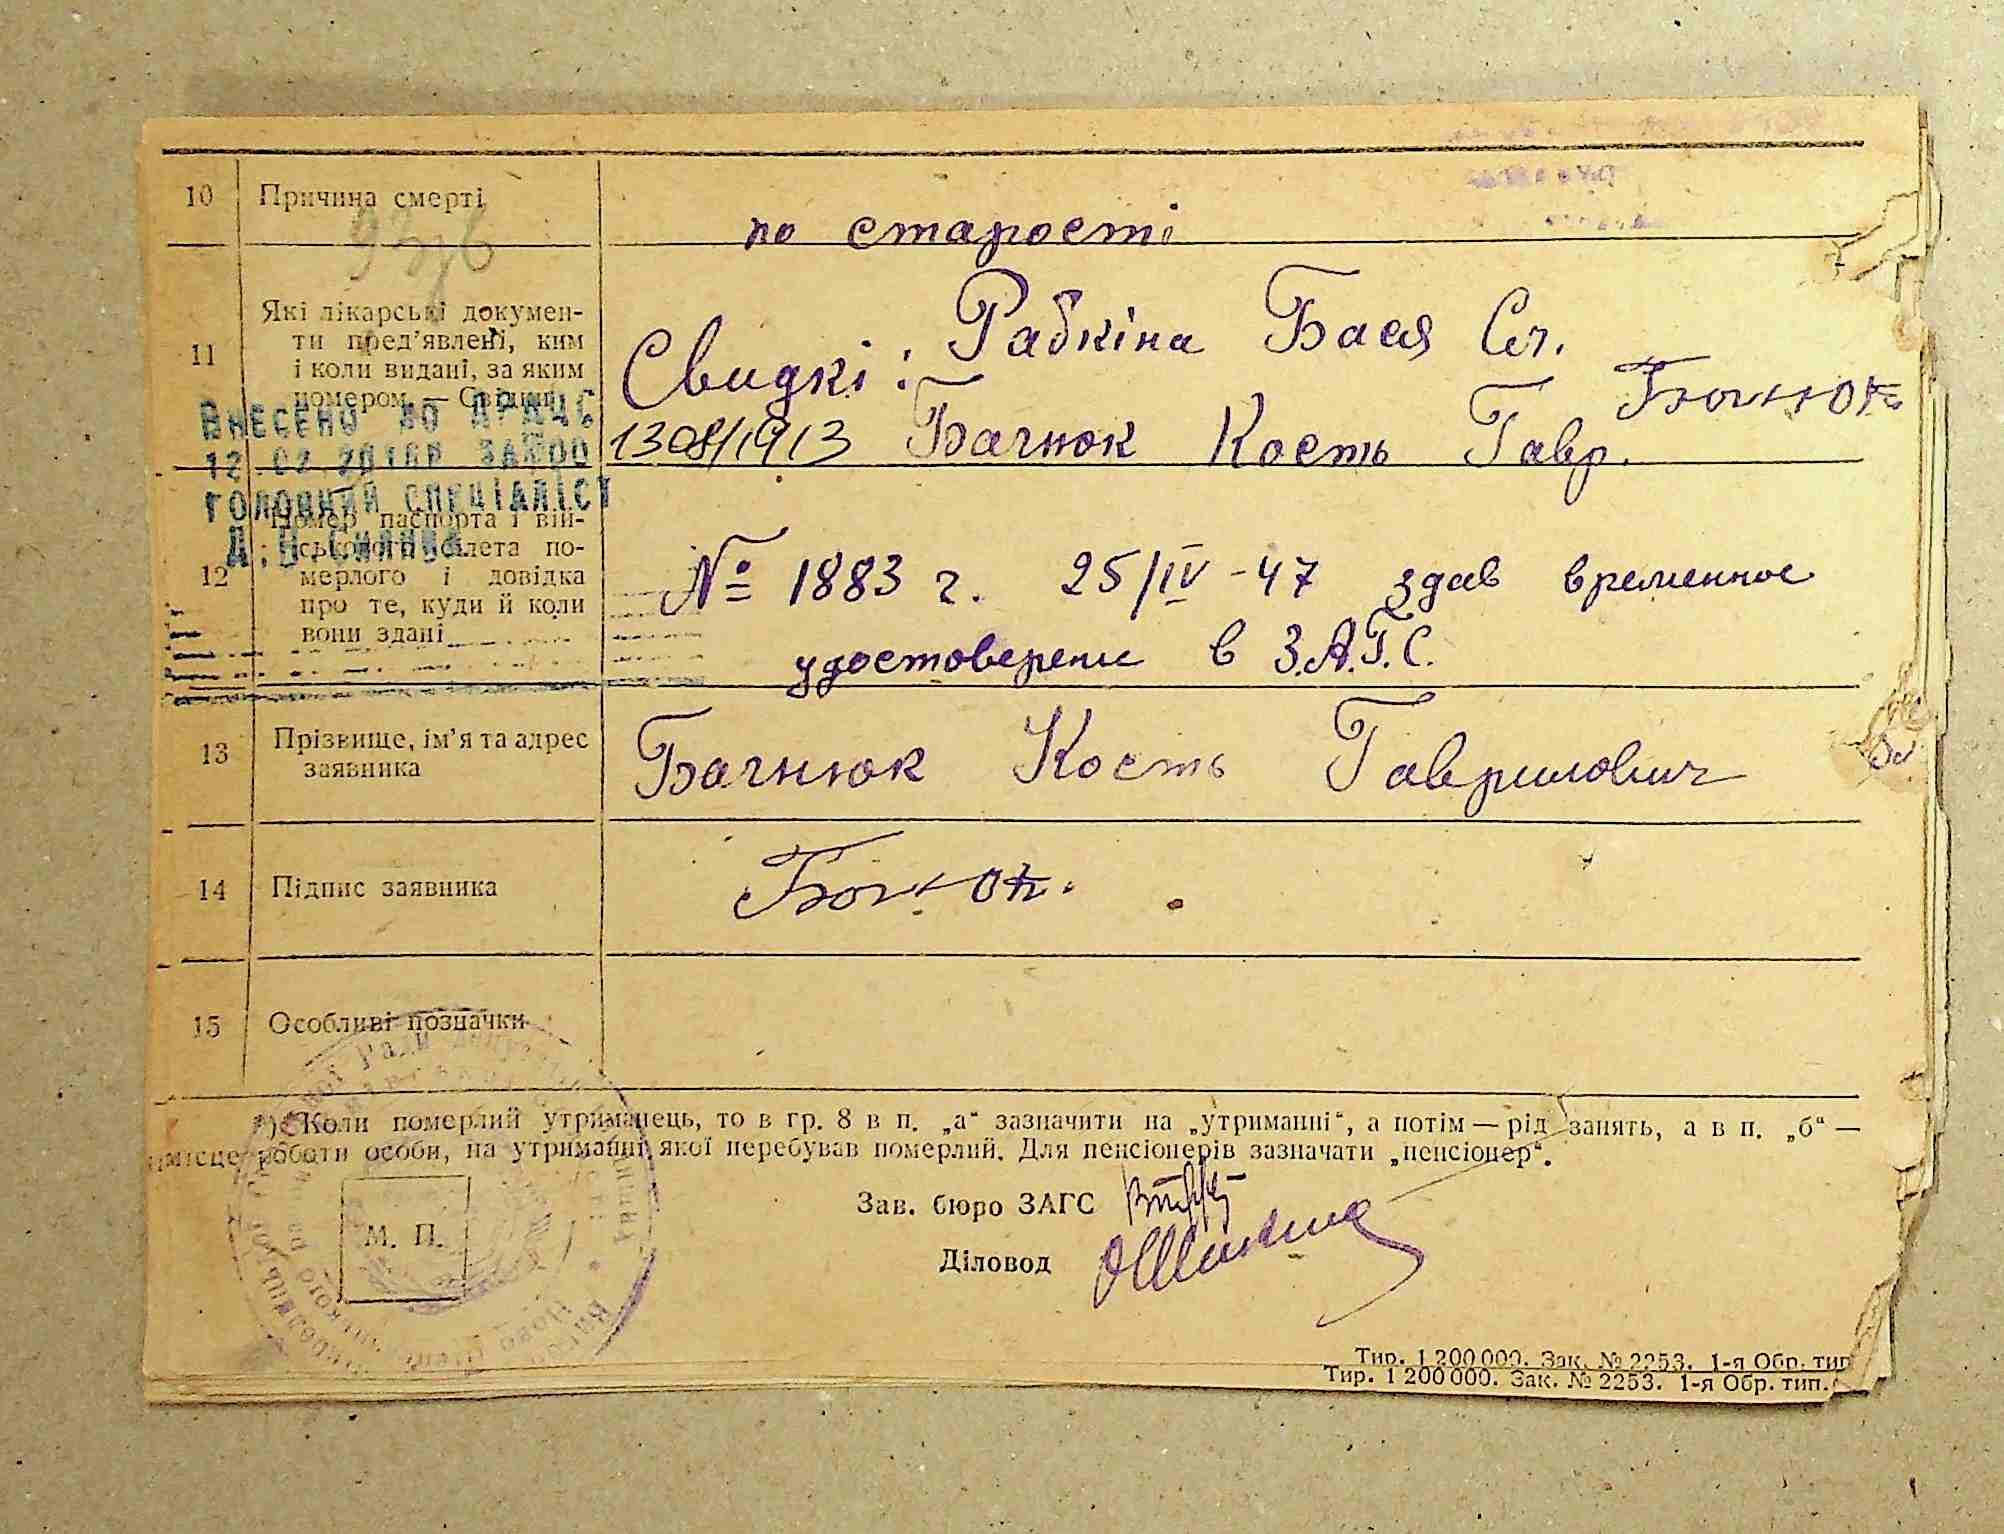 10 Причина смерті
по старості
11 Які лікарські докумен-
ти пред’явлені, ким
і коли видані, за яким
номером — Свідки
Свидкі: Рабкіна Бася Сл.
1308/1913 Бачнюк Кость Гавр. Бачнюк
ВНЕСЕНО ДО ДРАЦС
12 02
ГОЛОВНИЙ СПЕЦІАЛІСТ
12 Номер паспорта і вій-
ськового білета по-
мерлого і довідка
про те, куди й коли
вони здані
№ 1883 г. 25/IV-47 здав временное
удостоверение в З.А.Г.С.
13 Прізвище, ім’я та адрес
заявника
Бачнюк Кость Гаврилович
14 Підпис заявника
Бачнюк.
15 Особливі позначки
¹) Коли померлий утриманець, то в гр. 8 в п. „а“ зазначити на „утриманні“, а потім — рід занять, а в п. „б“ —
місце роботи особи, на утриманні якої перебував померлий. Для пенсіонерів зазначати „пенсіонер“.
Зав. бюро ЗАГС
М. П.
Діловод
Тир. 1 200 000. Зак. № 2253. 1-я Обр. тип
Тир. 1 200 000. Зак. № 2253. 1-я Обр. тип.